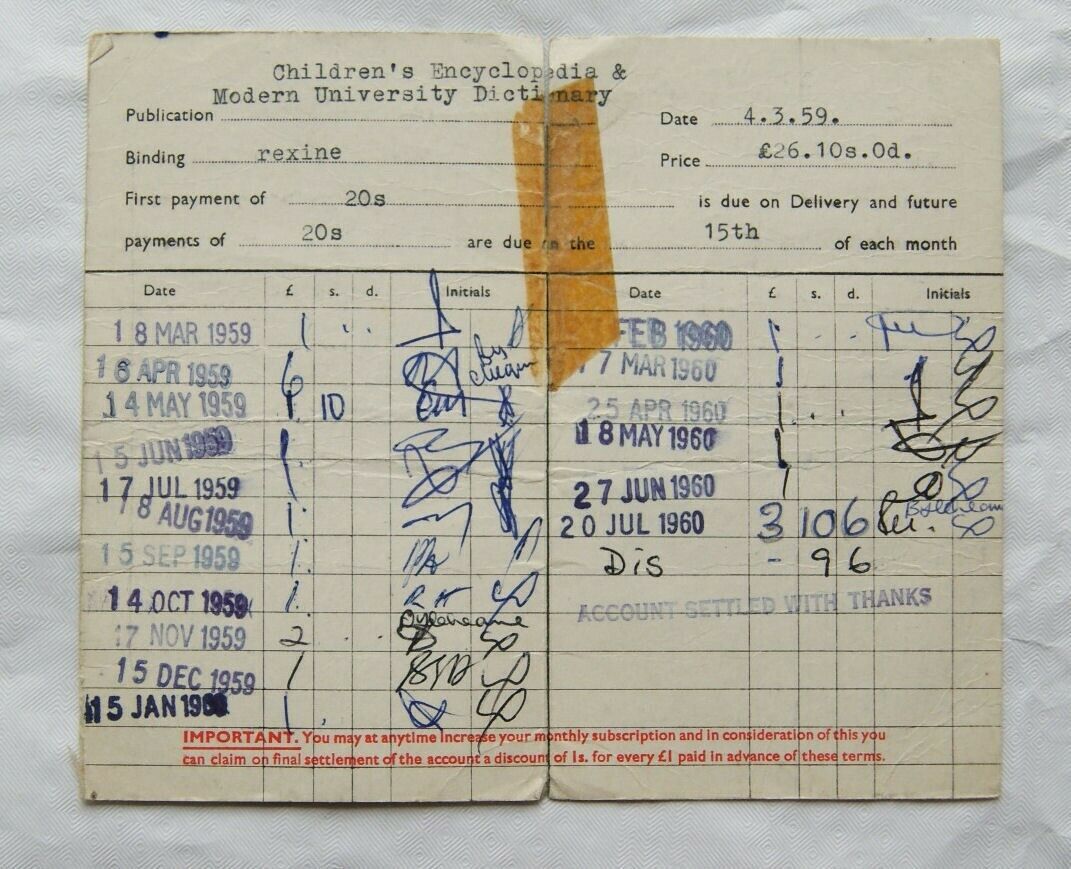 Children's Encyclopedia &
Modern University Dictionary
Publication
Date 4.3.59.
Binding rexine
Price £26.10s.0d.
First payment of 20s is due on Delivery and future
payments of 20s are due on the 15th of each month
Date £ s. d. Initials
Date £ s. d. Initials
18 MAR 1959 1
16 APR 1959 6
14 MAY 1959 1 10
15 JUN 1959 1
17 JUL 1959 1
18 AUG 1959 1
15 SEP 1959 1
14 OCT 1959 1
17 NOV 1959 2
15 DEC 1959 1
15 JAN 1960 1
FEB 1960 1
17 MAR 1960 1
25 APR 1960 1
18 MAY 1960 1
27 JUN 1960 1
20 JUL 1960 3 10 6
Dis - 9 6
ACCOUNT SETTLED WITH THANKS
IMPORTANT. You may at anytime increase your monthly subscription and in consideration of this you
can claim on final settlement of the account a discount of 1s. for every £1 paid in advance of these terms.